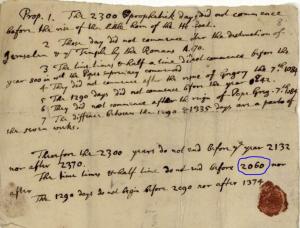 Prop. 1. The 2300 prophetick days did not commence
before the rise of the little horn of the He Goat.
2 Those day did not commence after the destruction of
Jerusalem & ye Temple by the Romans A. 70.
3 The time times & half a time did not commence before the
year 800 in wch the Popes supremacy commenced
4 They did not commence after the reigne of Gregory the 7th. 1084
5 The 1290 days did not commence before the year 842.
6 They did not commence after the reigne of Pope Greg. 7th. 1084
7 The diffence between the 1290 & 1335 days are a parts of
the seven weeks.
Therfore the 2300 years do not end before ye year 2132
nor after 2370.
The time times & half time do not end before 2060 nor
after
The 1290 days do not begin before 2090 nor after 1374